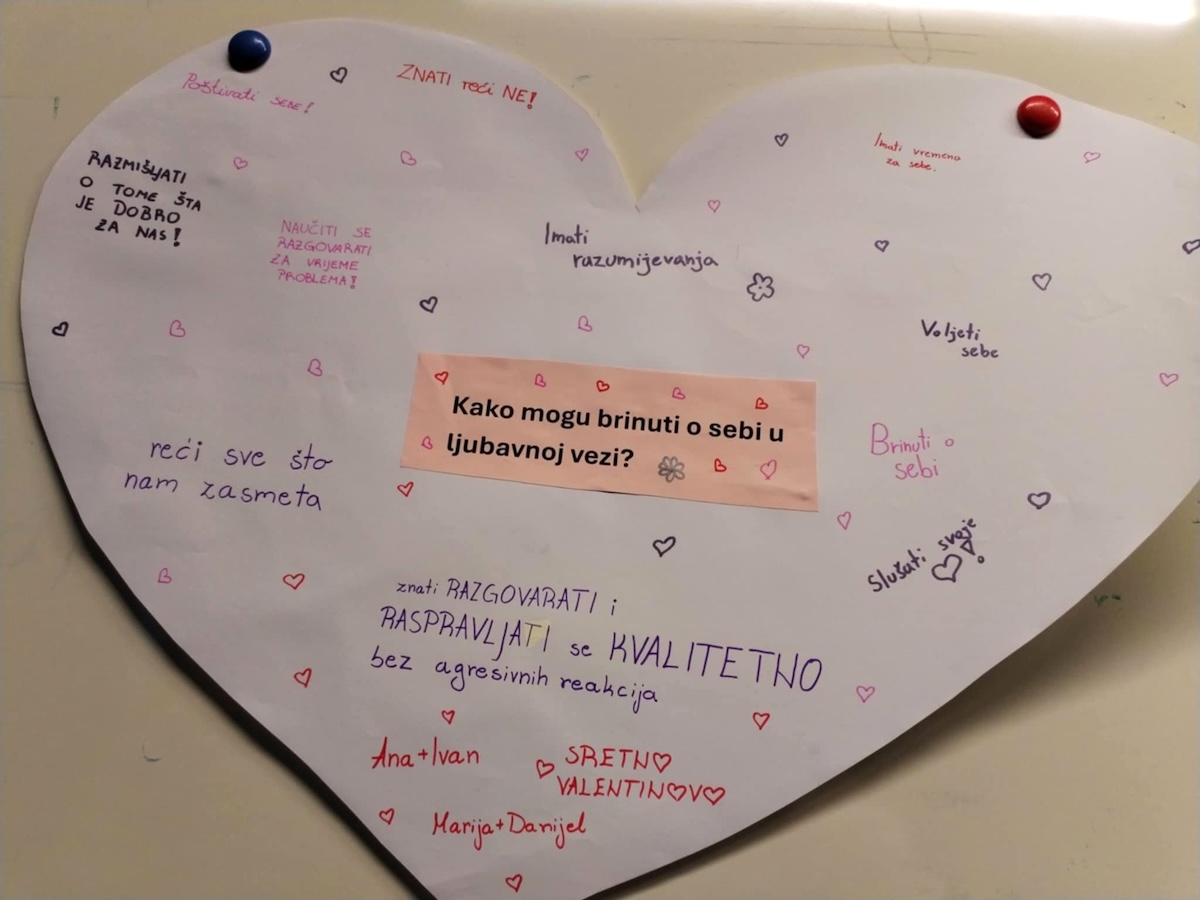 Poštivati SEBE!
ZNATI reći NE!
Imati vremena
za sebe.
RAZMIŠLJATI
O TOME ŠTA
JE DOBRO
ZA NAS!
NAUČITI SE
RAZGOVARATI
ZA VRIJEME
PROBLEMA!
Imati
razumijevanja
Voljeti
sebe
Kako mogu brinuti o sebi u
ljubavnoj vezi?
Brinuti o
sebi
reći sve što
nam zasmeta
Slušati svoje
znati RAZGOVARATI i
RASPRAVLJATI se KVALITETNO
bez agresivnih reakcija
Ana+Ivan
SRETNO
VALENTINOVO
Marija+Danijel